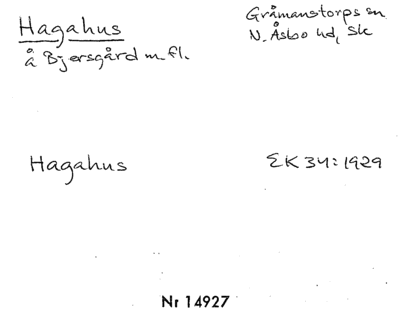 Hagahus
Gråmanstorps sn
å Bjersgård m. fl.
N. Åsbo hd, Sk
Hagahus
EK 34:1929
Nr 14927